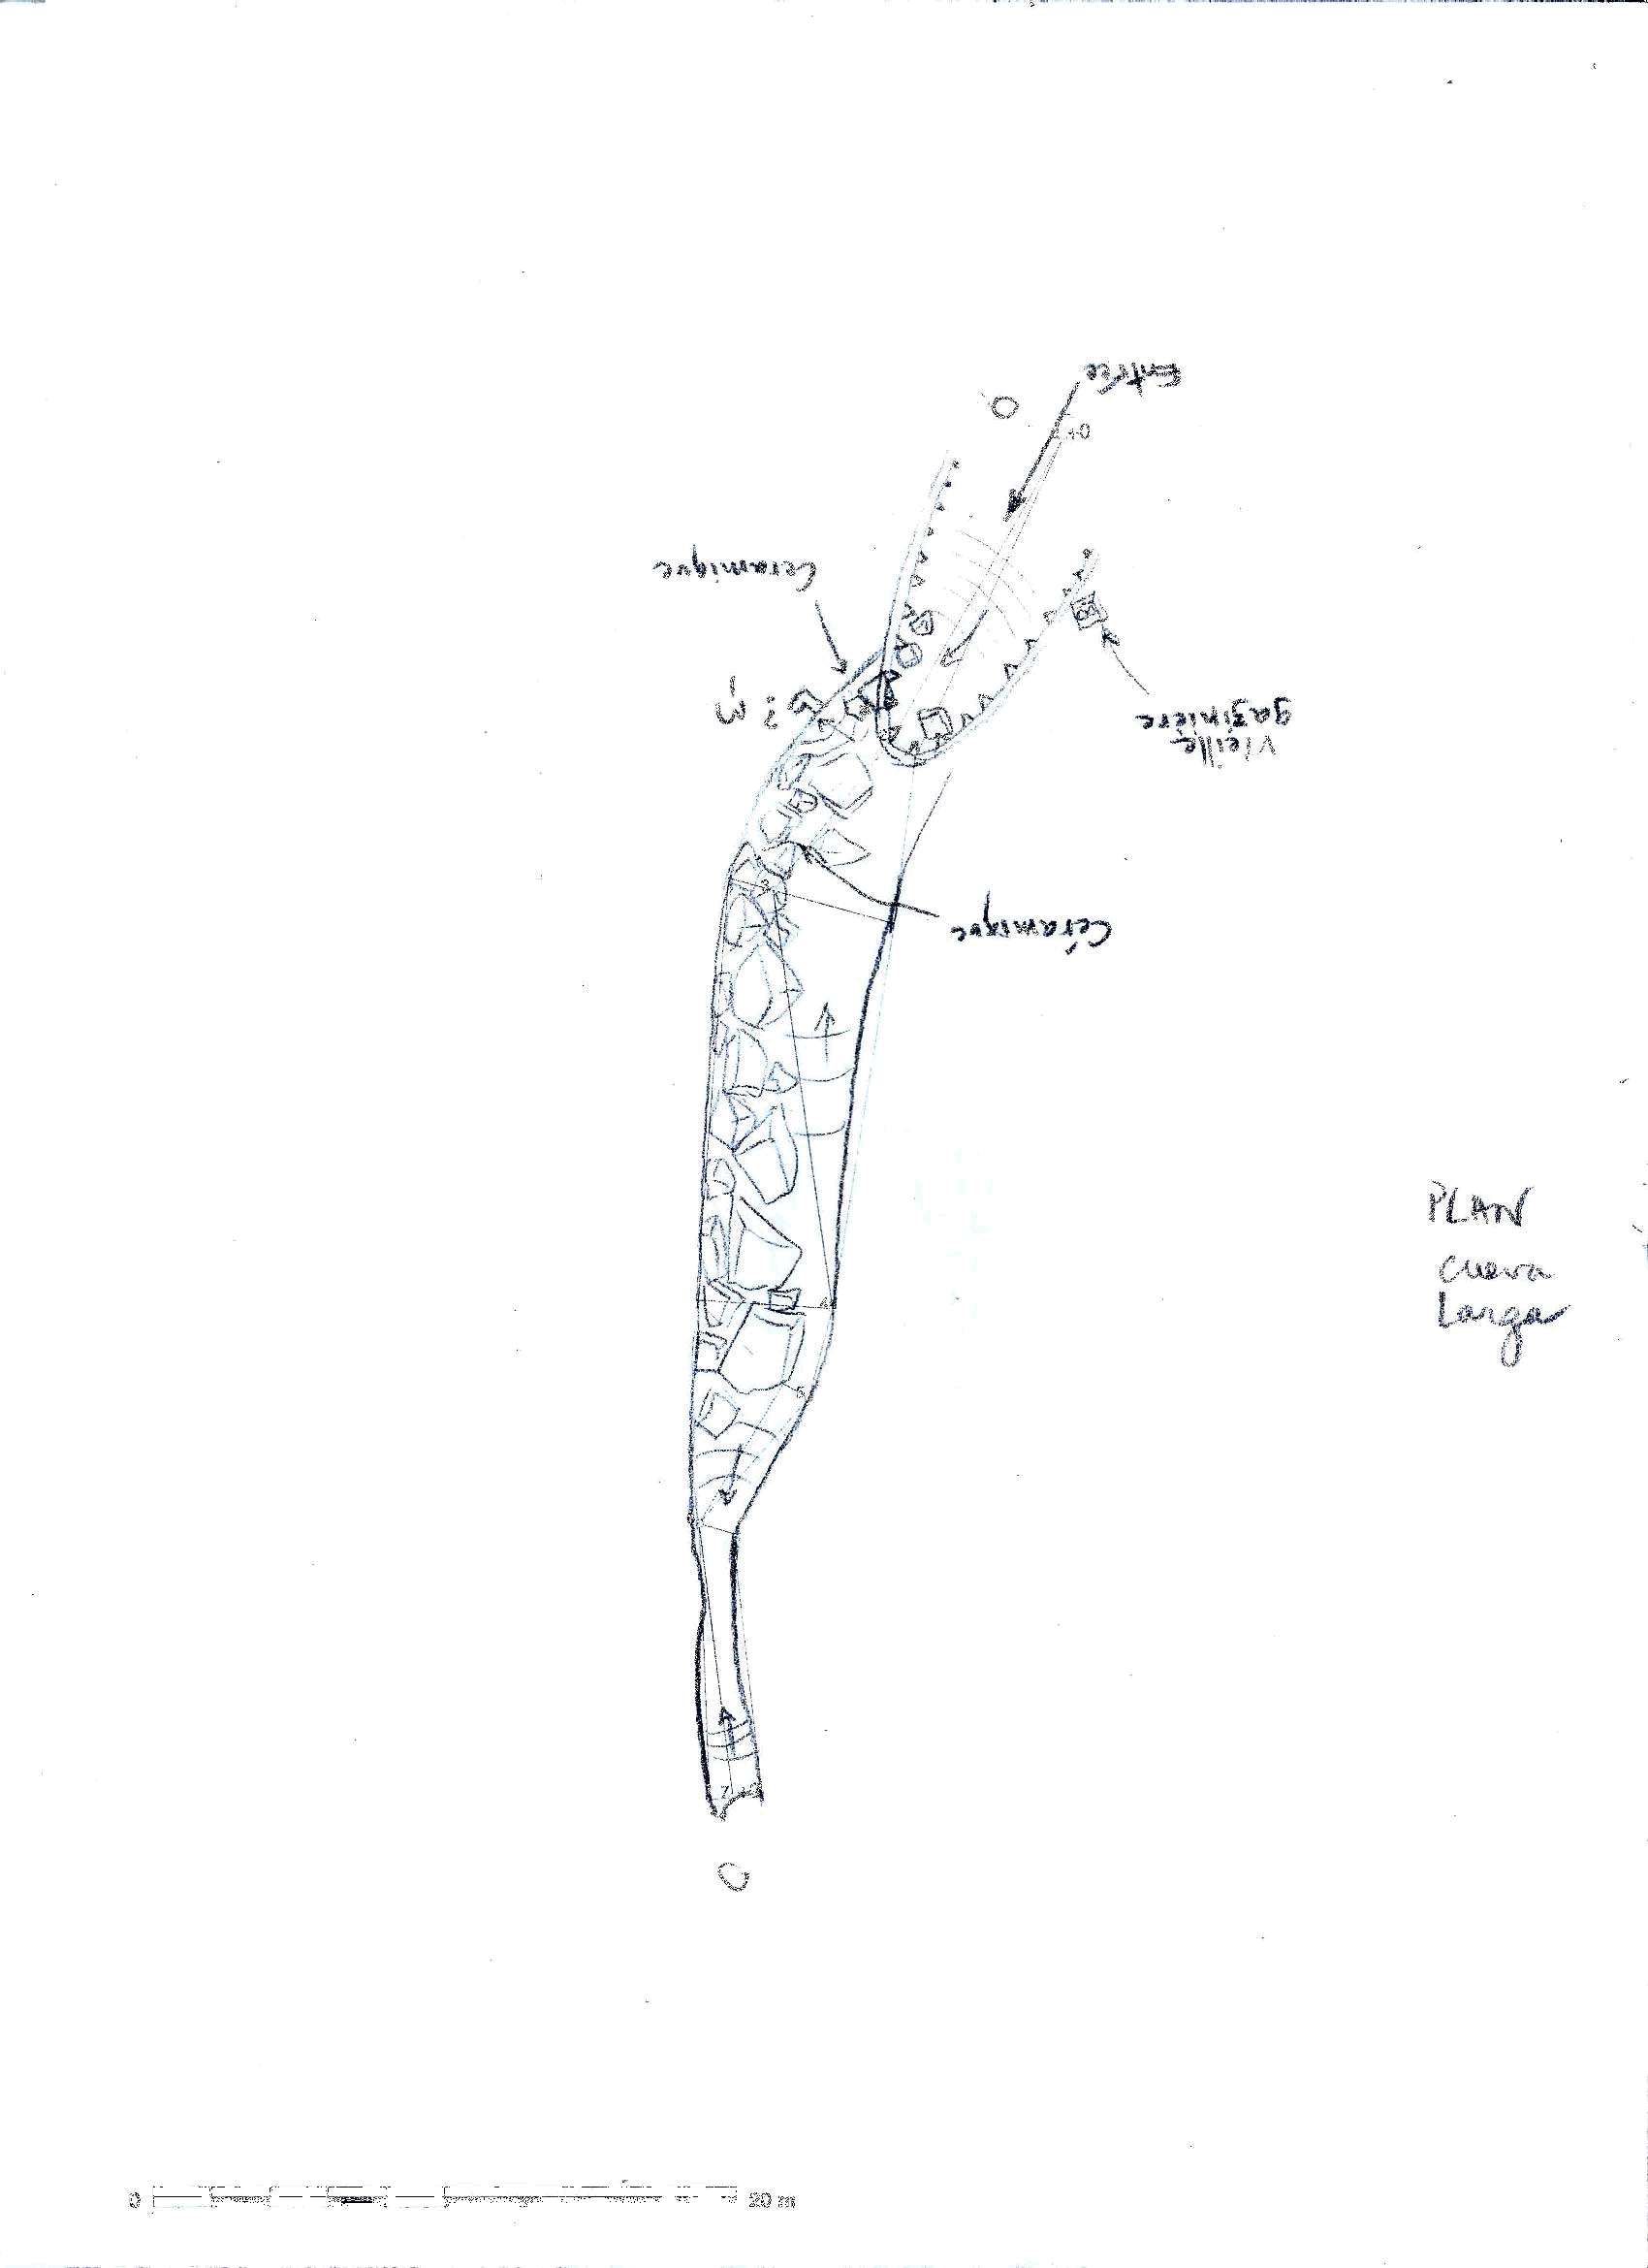 Entrée
+0
Céramique
Vieille
gazinière
Céramique
PLAN
Cueva
Larga
4
5
7
0
20 m